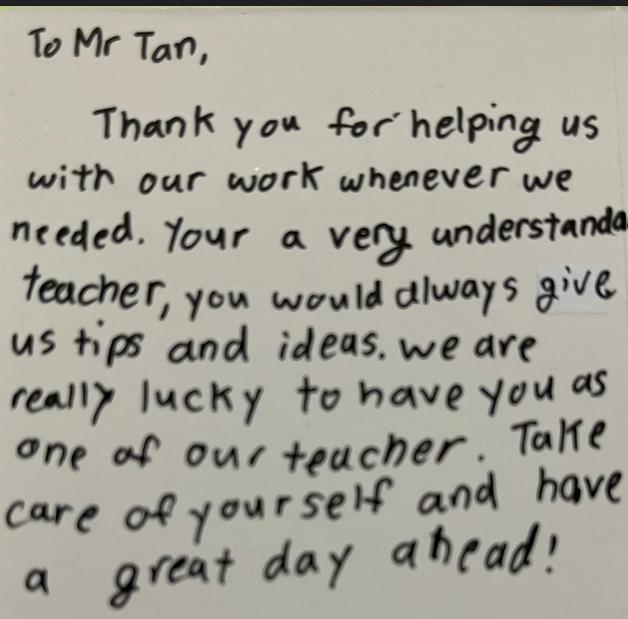 To Mr Tan,
Thank you for helping us
with our work whenever we
needed. Your a very understanda
teacher, you would always give
us tips and ideas. we are
really lucky to have you as
one of our teacher. Take
care of yourself and have
a great day ahead!